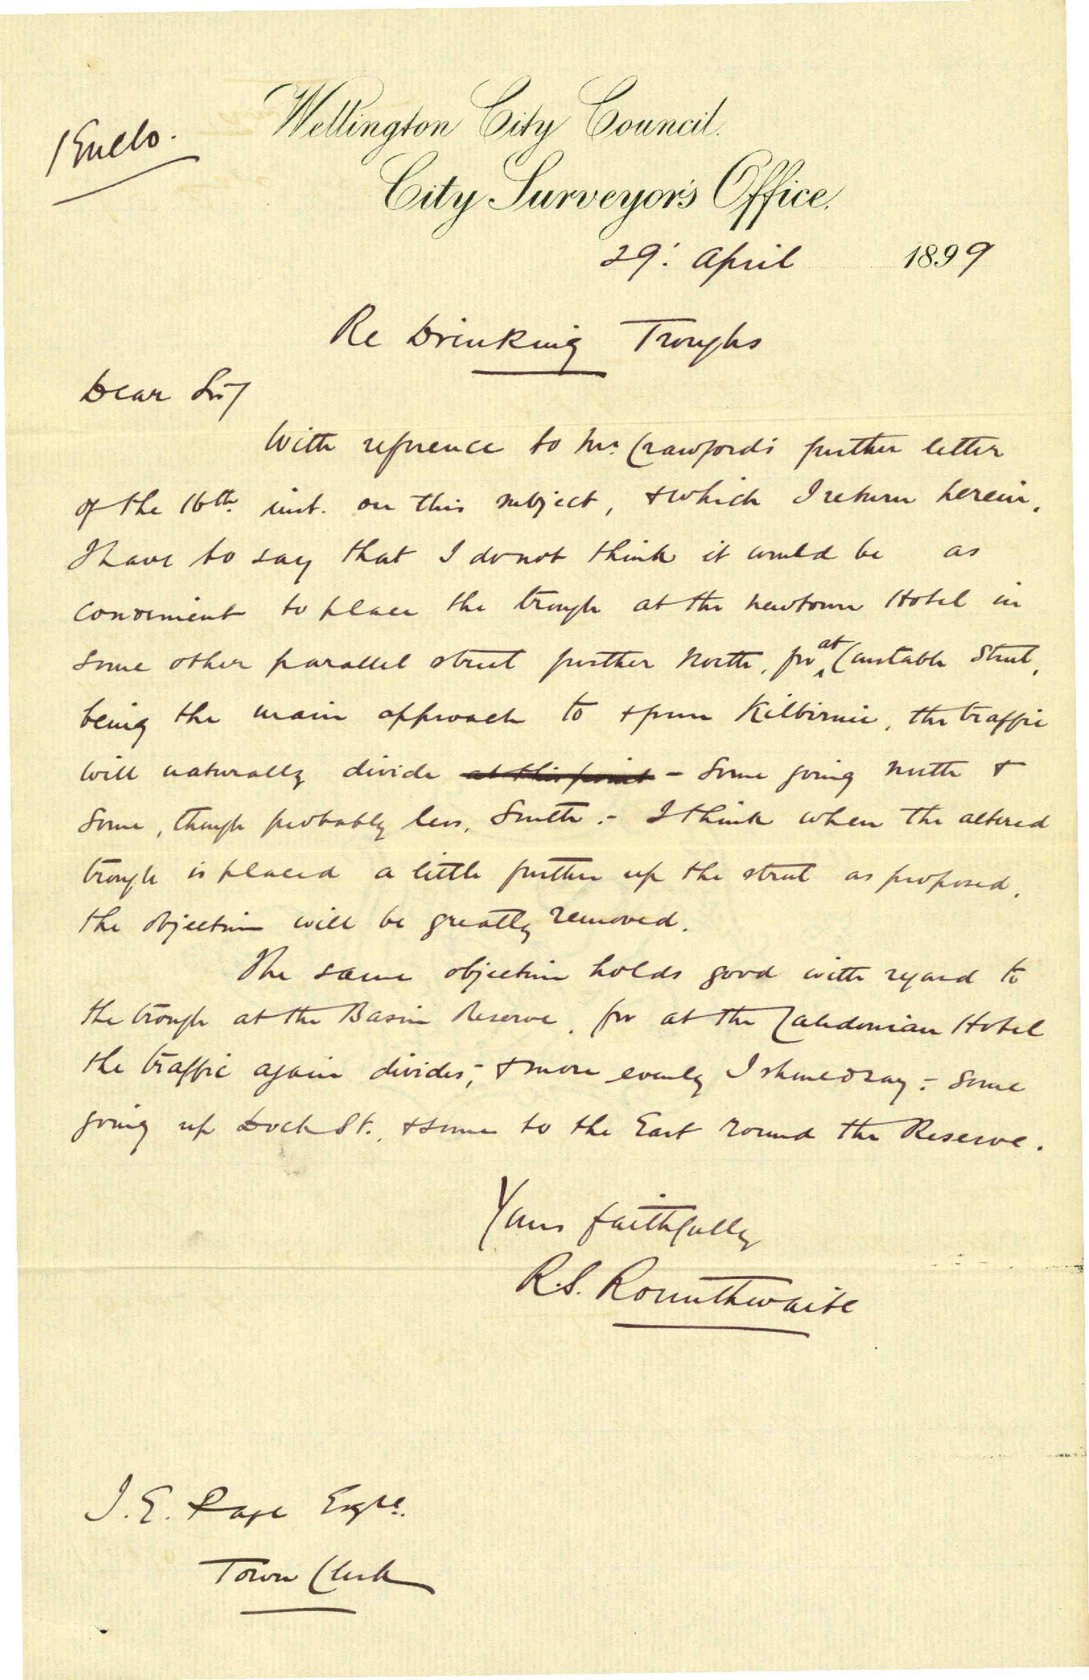 1 Enclo.
Wellington City Council.
City Surveyor's Office.
29: April 1899
Re Drinking Troughs
Dear Sir/
With reference to Mr. Crawford's further letter
of the 16th. inst. on this subject, & which I return herein,
I have to say that I do not think it would be as
convenient to place the trough at the Newtown Hotel in
some other parallel street further North, for at Constable Street,
being the main approach to & from Kilbirnie, the traffic
will naturally divide at this point - some going North &
some, though probably less, South. - I think when the altered
trough is placed a little further up the street as proposed,
the objection will be greatly removed.
The same objection holds good with regard to
the trough at the Basin Reserve, for at the Caledonian Hotel
the traffic again divides, & more evenly I should say - some
going up Dock St., & some to the East round the Reserve.
Yours faithfully
R.S. Rounthwaite
J. E. Page Esqre.
Town Clerk